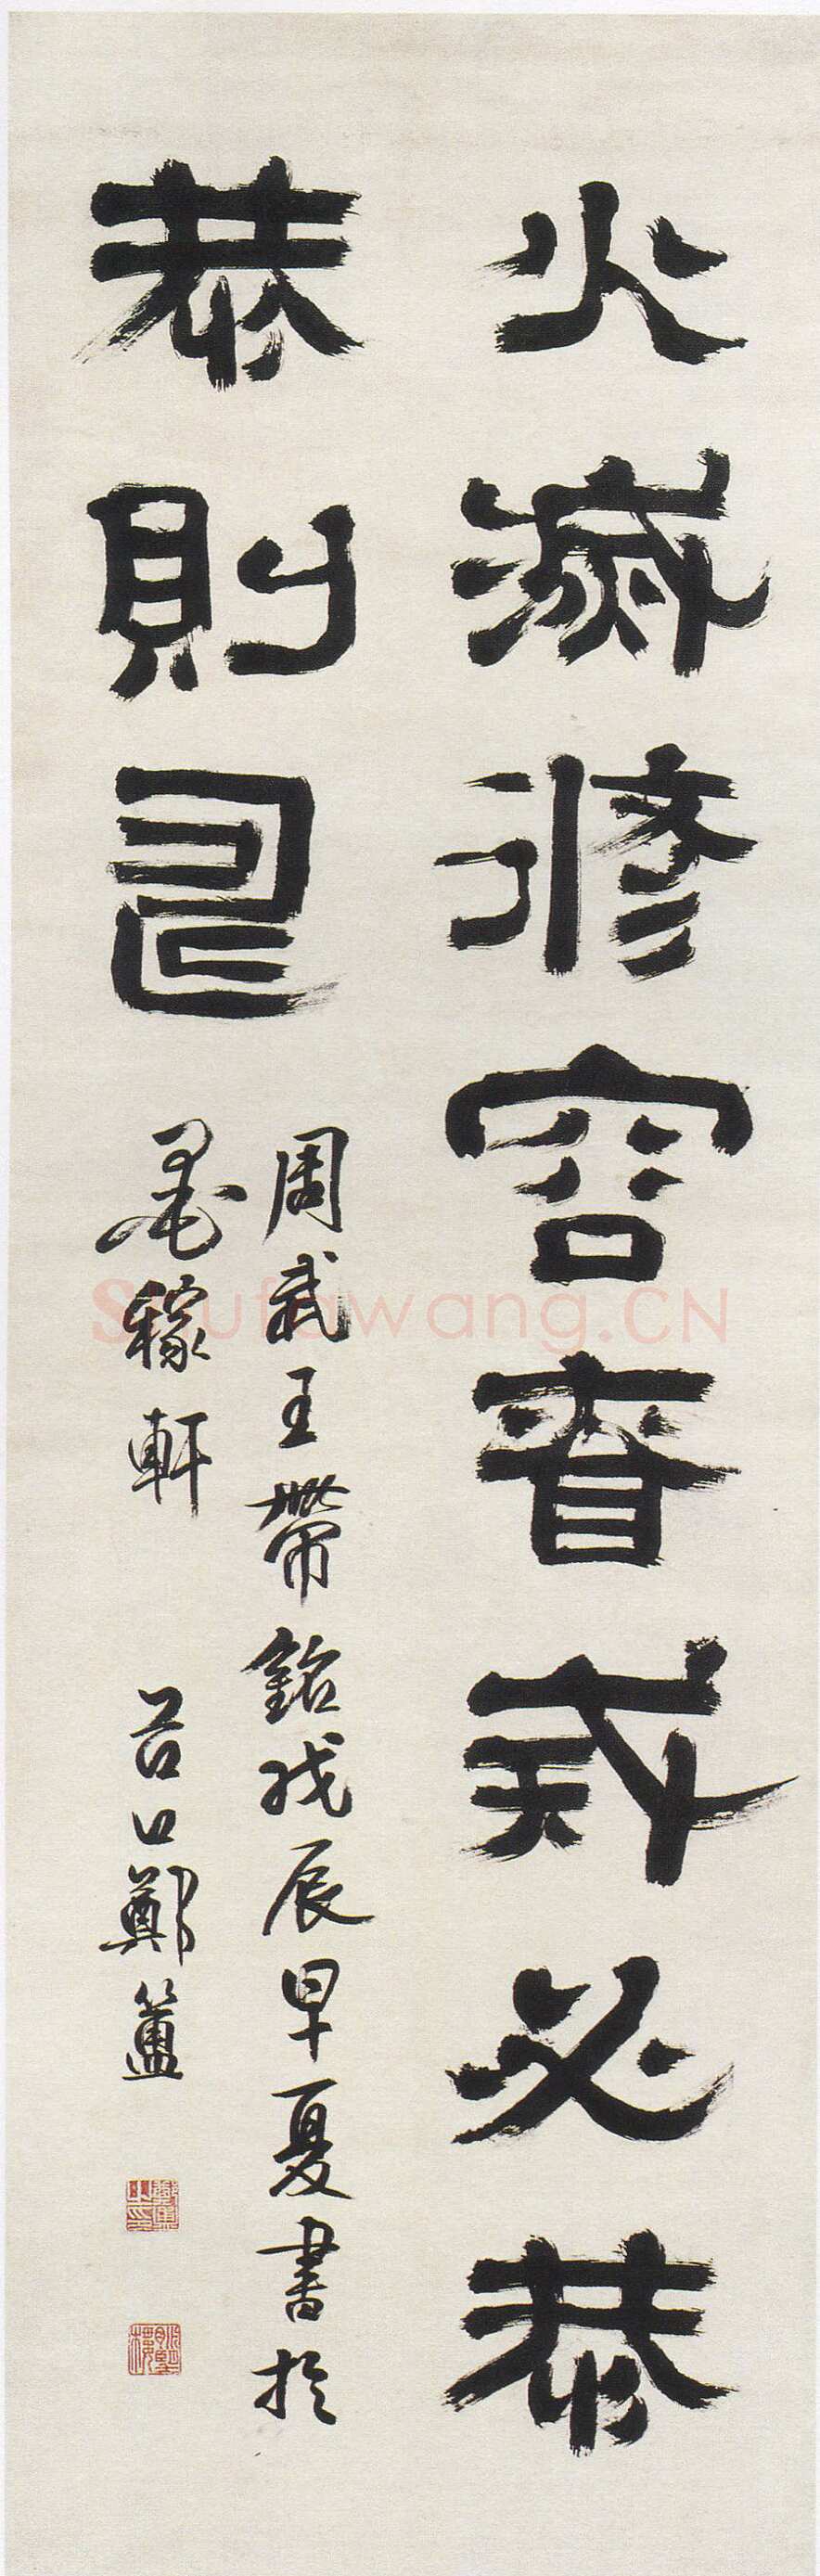 火滅修容昚戒必恭
恭則壽
周武王帶銘戊辰早夏書於
墨稼軒 谷口鄭簠
Shufawang.CN